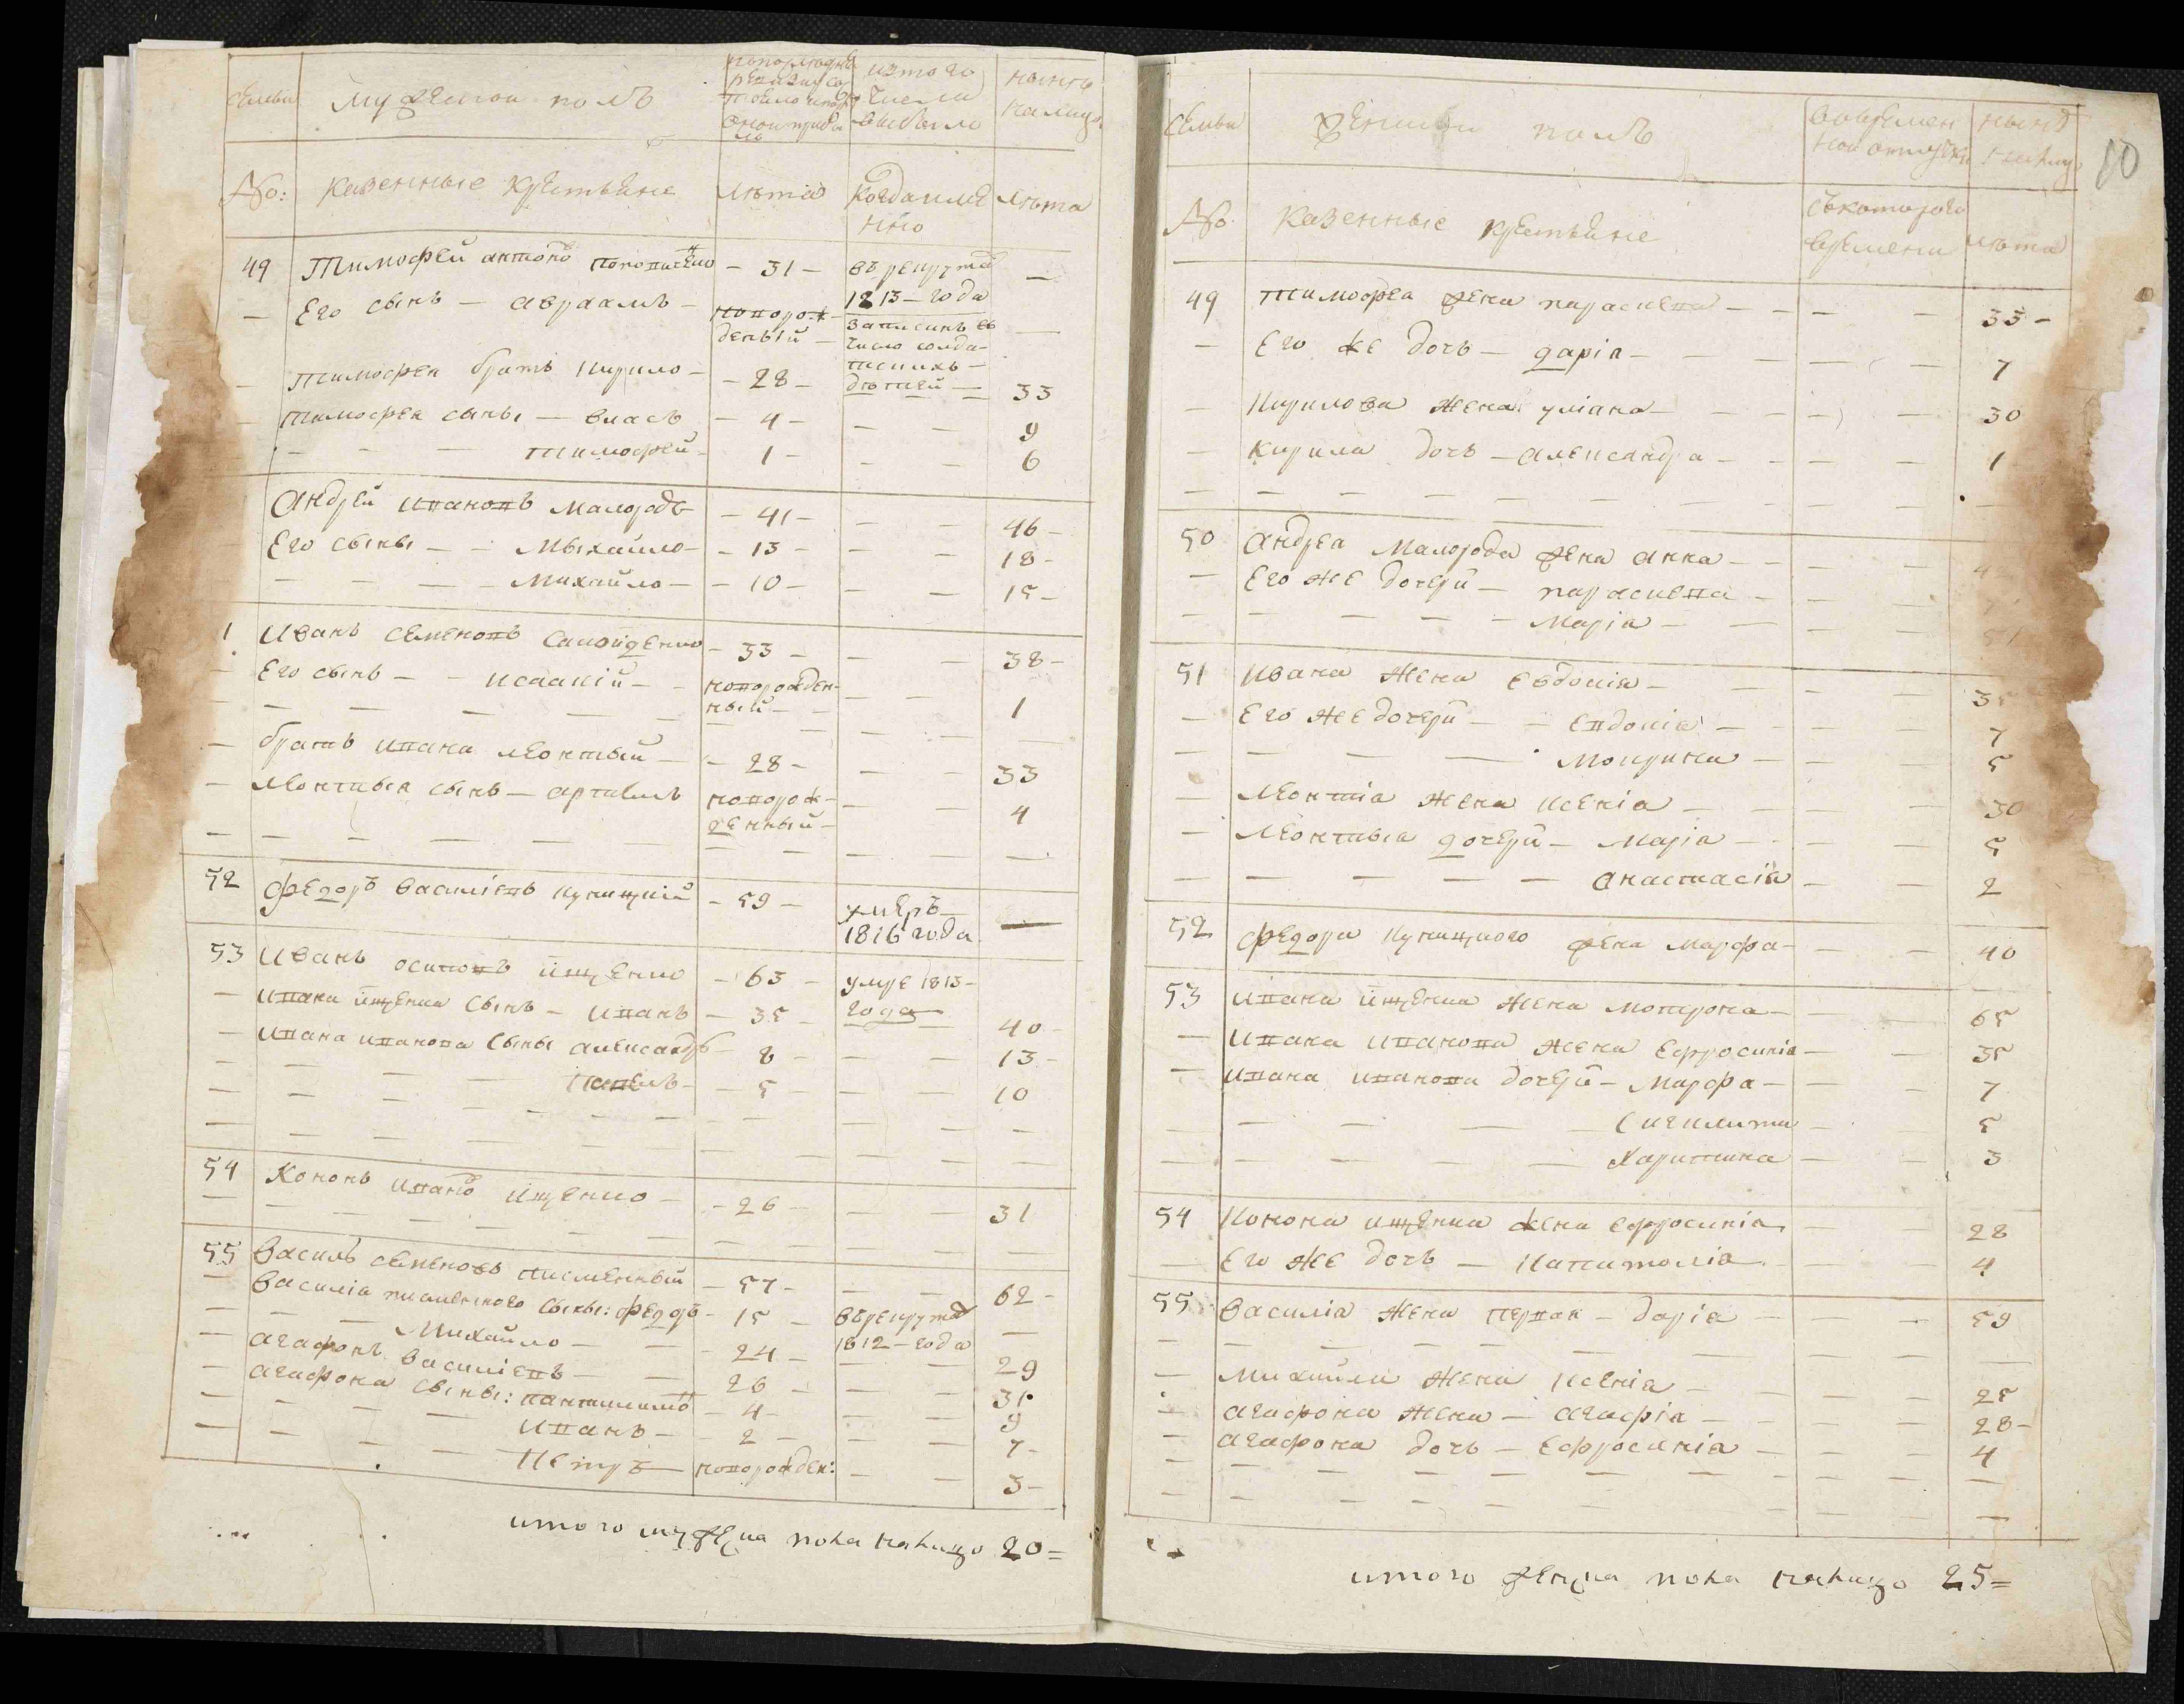 семьи
мужескои полъ
изтого
числа
выбыло
нынѣ
налицо
No:
казенные крестьяне
лѣта
когда имѣ
нно
лѣта
49 Тимофей антоно - 31 - въ рекрута -
1813 - года
- Его сынъ - авраамъ - новорож
деный - записанъ въ
число солда-
тскихъ -
дѣтей -
- тимофея братъ кирило - - 28 - - 33
- тимофея сыны - власъ - 4 - - - 9
- - - тимофей - 1 - - - 6
Андрей ивановъ малородъ - 41 - - - 46 -
Его сыны - - Мыхайло - - 13 - - - 18 -
- - - - Михайло - - 10 - - - 15 -
1 Иванъ семеновъ - 33 - - - 38 -
- Его сынъ - - исаакій - - новорожден-
ный - - 1
- братъ ивана леонтый - - 28 - - - 33
- леонтыя сынъ - новорож-
денный - - - 4
52 федоръ василіевъ куницкій - 59 - умеръ
1816 года -
53 Иванъ осиповъ ищенко - 63 - умре 1813 -
года
- ивана ищенка сынъ - иванъ - 35 - 40 -
- ивана иванова сыны александръ - 8 - - - 13 -
- - - - Павелъ - - 5 - - - 10
54 Кононъ ивано ищенко - - 26 - - - 31
55 Василь семеновъ писменный - 57 - - - 62 -
- Василіа писменного сыны: федоръ - 15 - въ рекрута
1812 - года -
- - Михайло - - 24 - - - 29
- агафонъ василіевъ - - 26 - - - 31
- агафона сыны: - 4 - - - 9
- - - иванъ - - 2 - - - 7 -
- - - Петръ - новорожден: - - 3 -
итого мужеска пола налицо 20 =
10
семьи
женски полъ
вовремен
ной отлучки
нынѣ
налицо
No.
казенные крестьяне
съкоторого
времени
лѣта
49 тимофея жена параскева - - - - 33 -
- Его же дочь - дарія - - - - - 7
- Кирилова жена уліана - - - - 30
- кирила дочь - александра - - - - 1
50 Андреа Малорода жена анна - - -
- Его же дочери - параскева - - -
- - - - Маріа - - -
51 Ивана жена евдокія - - - - 35
- Его же дочери - - евдокіа - - - - 7
- - - Мокрина - - - 5
- Леонтіа жена ксеніа - - - - 30
- Леонтыа дочери - Маріа - - - - 5
- - - - - анастасіа - - 2
52 федора куницкого жена марфа - - - 40
53 ивана ищенка жена мотрона - - - 65
- ивана иванова жена Ефросиніа - - 35
- ивана иванова дочери - Марфа - - - 7
- - - - - - - 5
- - - - - Харитина - - 3
54 Конона ищенка жена ефросиніа - - 28
Его же дочь - Капитоліа - - 4
55 Василіа жена - даріа - - - 59
- Михайла жена ксеніа - - - 25
- агафона жена - агафіа - - - 28 -
- агафона дочь - Ефросиніа - - - 4
итого женска пола налицо 25 =